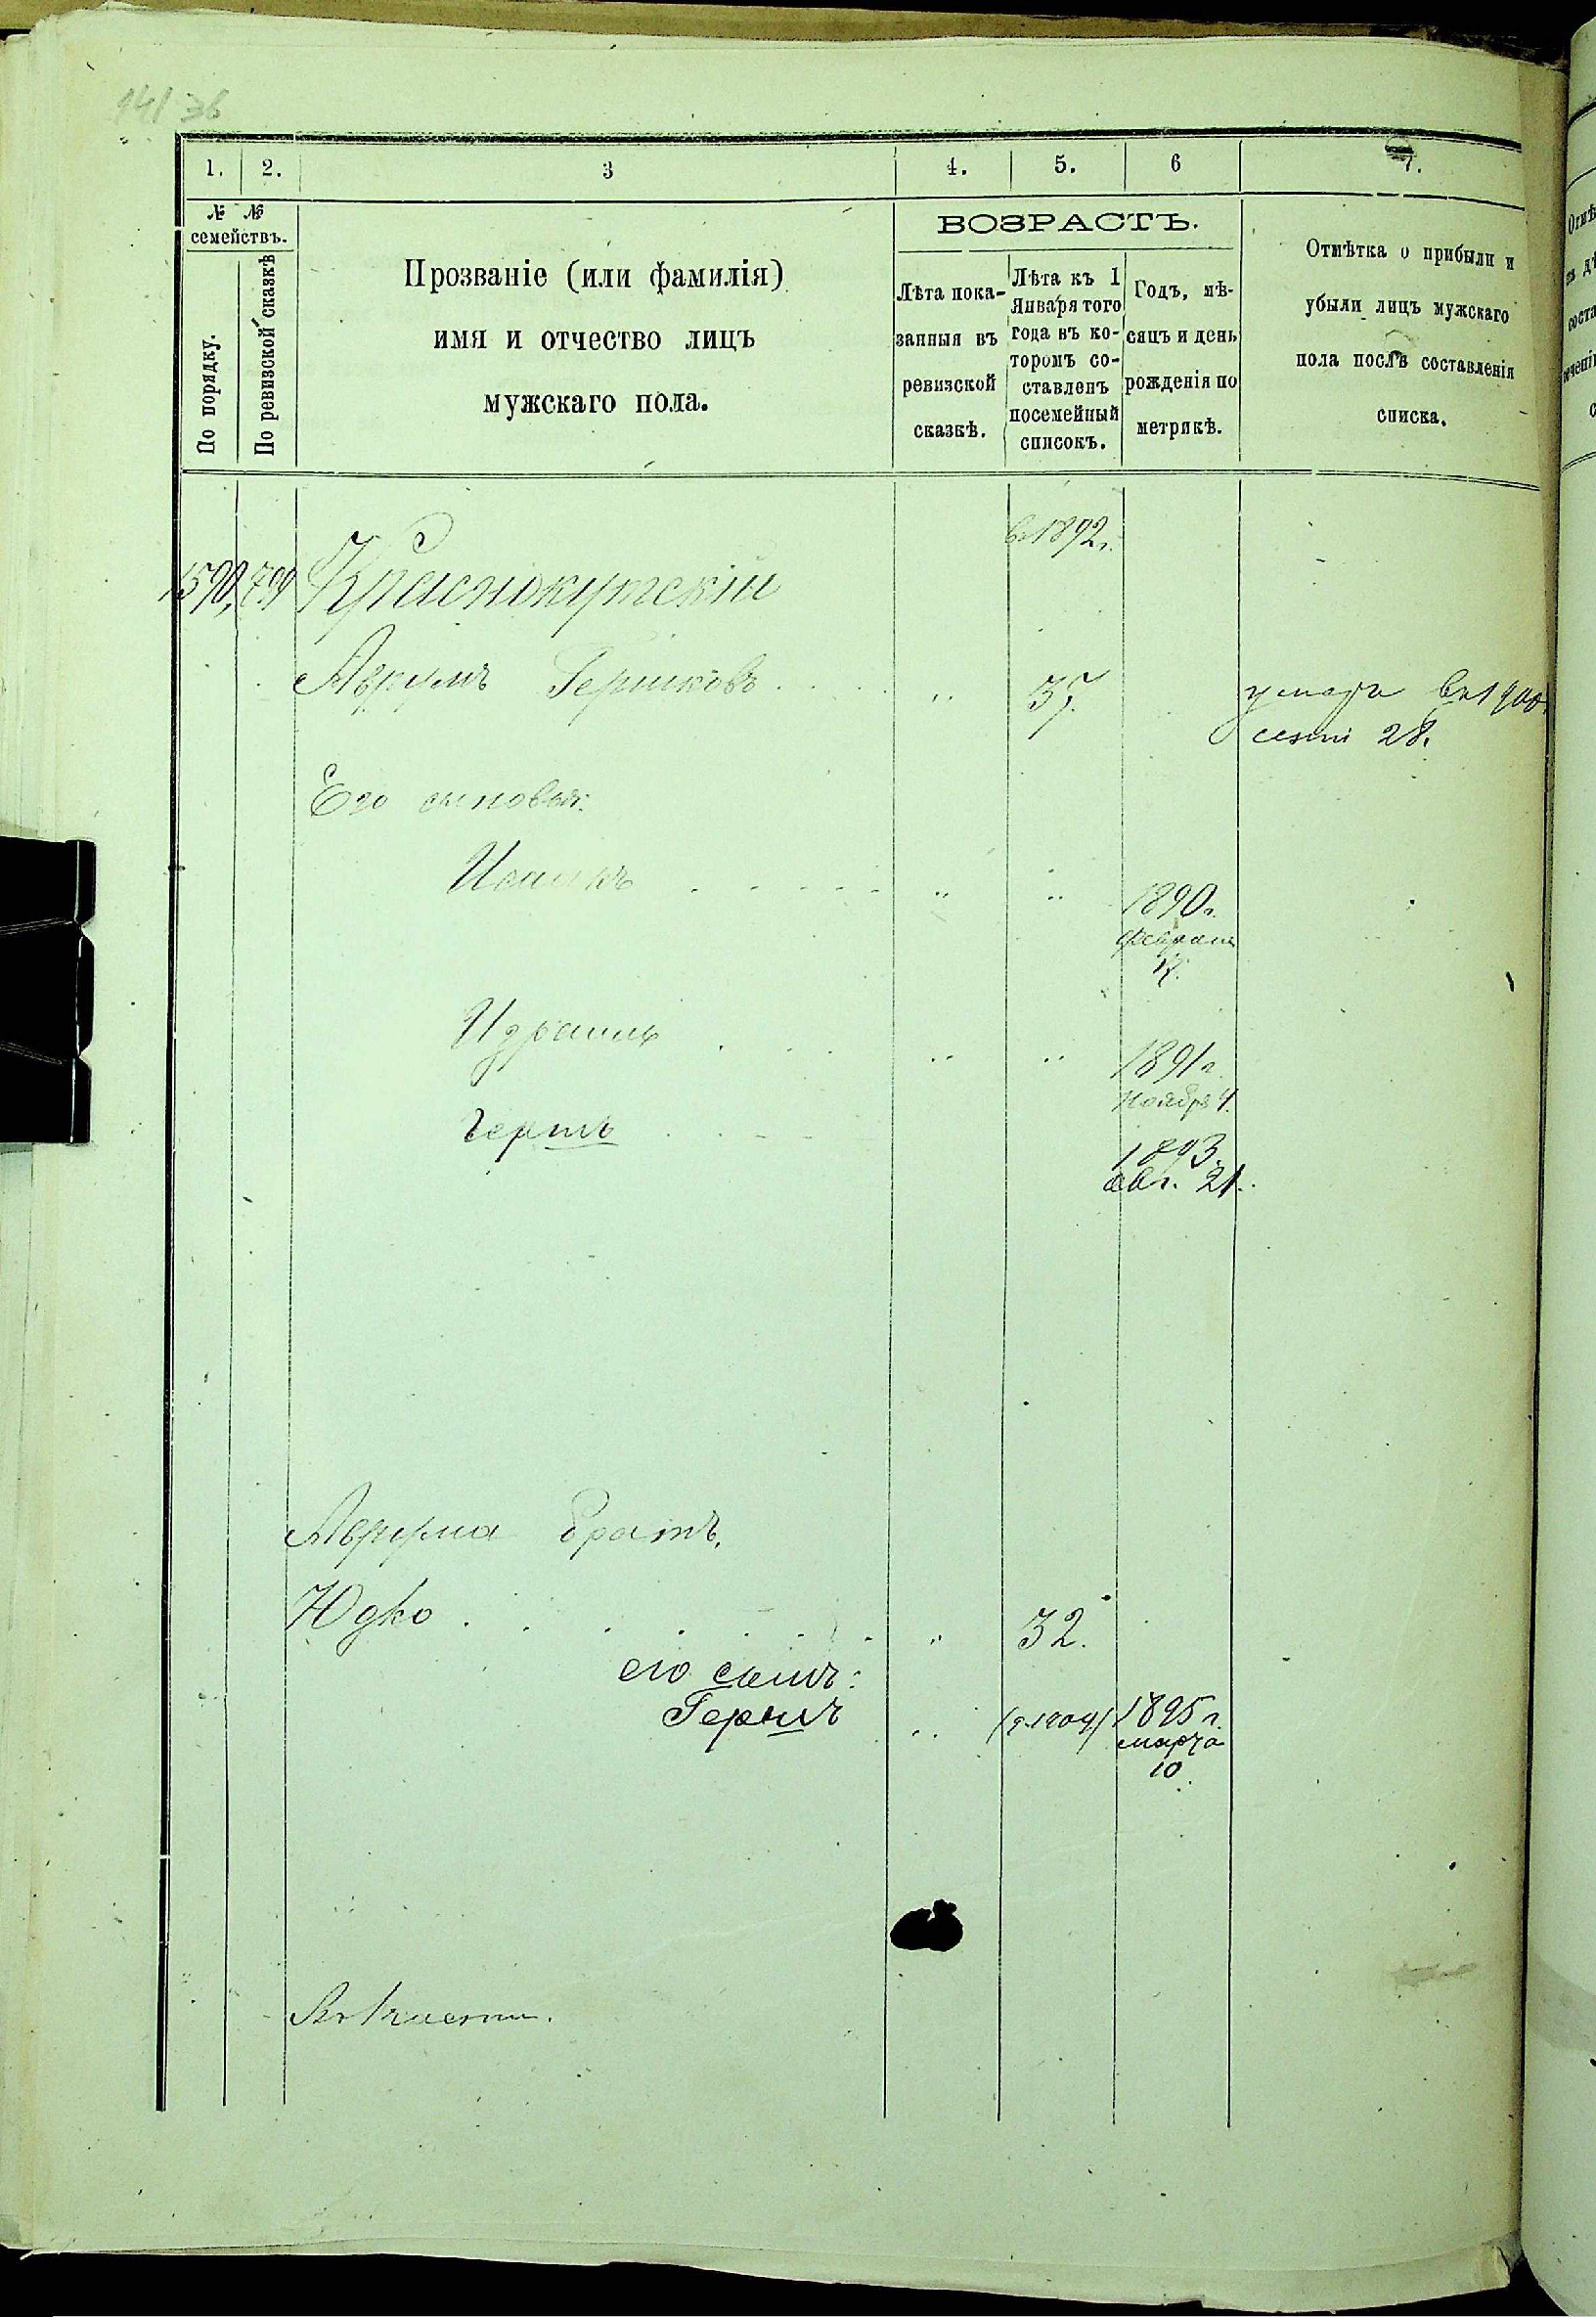 141 об
1. 2. 3 4. 5. 6 7.
№ №
семействъ.
По порядку.
По ревизской сказкѣ
Прозваніе (или фамилія)
имя и отчество лицъ
мужскаго пола.
ВОЗРАСТЪ.
Лѣта пока-
занныя въ
ревизской
сказкѣ.
Лѣта къ 1
Января того
года въ ко-
торомъ со-
ставленъ
посемейный
списокъ.
Годъ, мѣ-
сяцъ и день
рожденія по
метрикѣ.
Отмѣтка о прибыли и
убыли лицъ мужскаго
пола послѣ составленія
списка.
въ 1892 г.
1590, 799 Краснокутскій
Аврумъ Гершковъ . . . „ 35. умеръ въ 1900
сент 28.
Его сыновья:
Исаакъ . . . . . „ „ 1890 г.
февраля
12.
Израиль . . . „ „ 1891 г.
Ноября 4.
Гершъ . . . . 1893.
авг. 21.
Аврума братъ,
Юдко . . . . . . . „ 32.
его сынъ:
Гершъ „ (г. 1904) 1895 г.
марта
10.